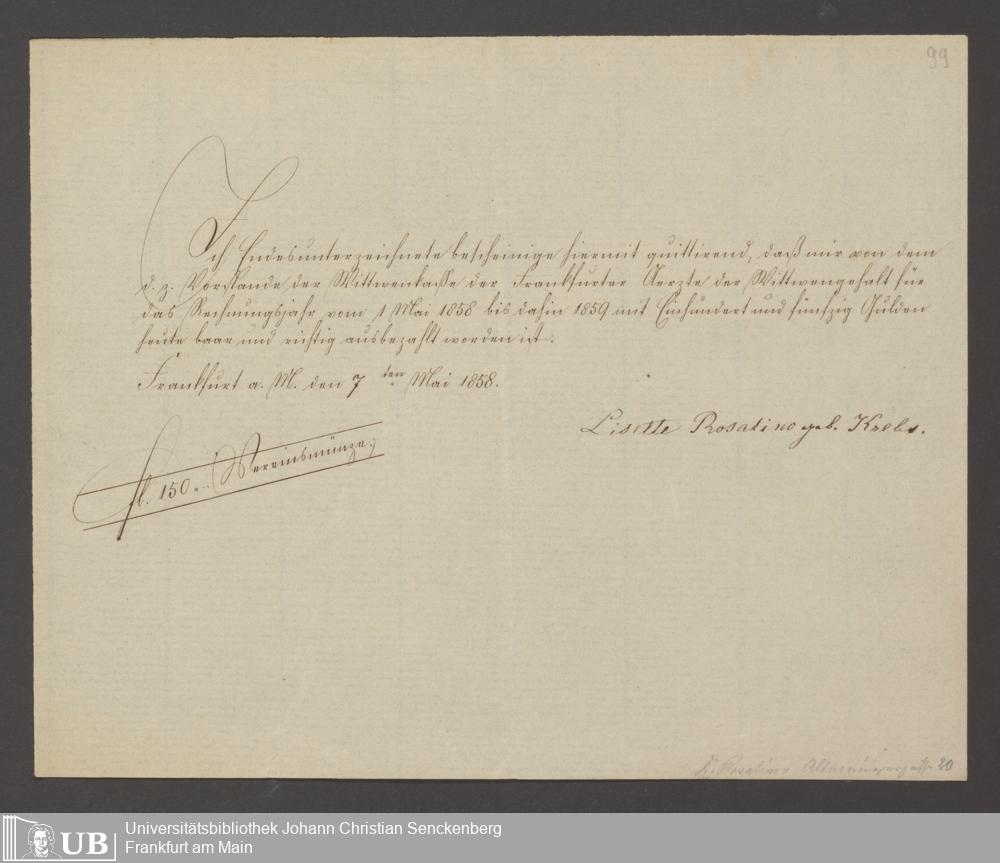 99
Ich Endesunterzeichnete bescheinige hiermit quittirend, daß mir von dem
d. z. Vorstande der Wittwenkasse der Frankfurter Aerzte der Wittwengehalt für
das Rechnungsjahr vom 1 Mai 1858 bis dahin 1859 mit Einhundert und fünfzig Gulden
heute baar und richtig ausbezahlt worden ist.
Frankfurt a. M. den 7ten Mai 1858.
Lisette Rosalino geb. Krebs.
fl. 150.– (Vereinsmünze.)
Rosalino 20
UB
Universitätsbibliothek Johann Christian Senckenberg
Frankfurt am Main